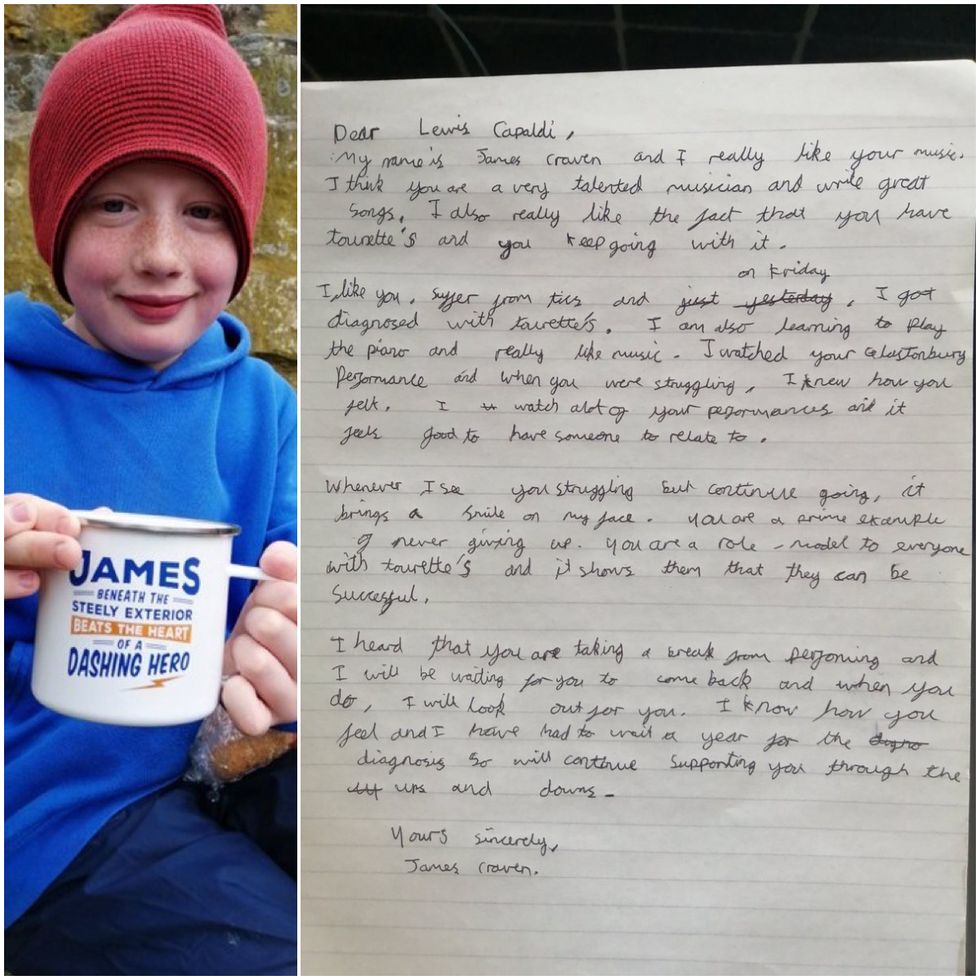 JAMES
BENEATH THE
STEELY EXTERIOR
BEATS THE HEART
OF A
DASHING HERO
Dear Lewis Capaldi,
My name is James Craven and I really like your music.
I think you are a very talented musician and write great
songs. I also really like the fact that you have
tourette's and you keep going with it.
on Friday
I, like you, suffer from tics and just yesterday, I got
diagnosed with tourette's. I am also learning to play
the piano and really like music. I watched your Glastonbury
performance and when you were struggling, I knew how you
felt. I watch alot of your performances and it
feels good to have someone to relate to.
Whenever I see you struggling but continue going, it
brings a smile on my face. You are a prime example
of never giving up. You are a role-model to everyone
with tourette's and it shows them that they can be
successful.
I heard that you are taking a break from performing and
I will be waiting for you to come back and when you
do, I will look out for you. I know how you
feel and I have had to wait a year for the
diagnosis so will continue supporting you through the
ups and downs.
Yours sincerely,
James Craven.